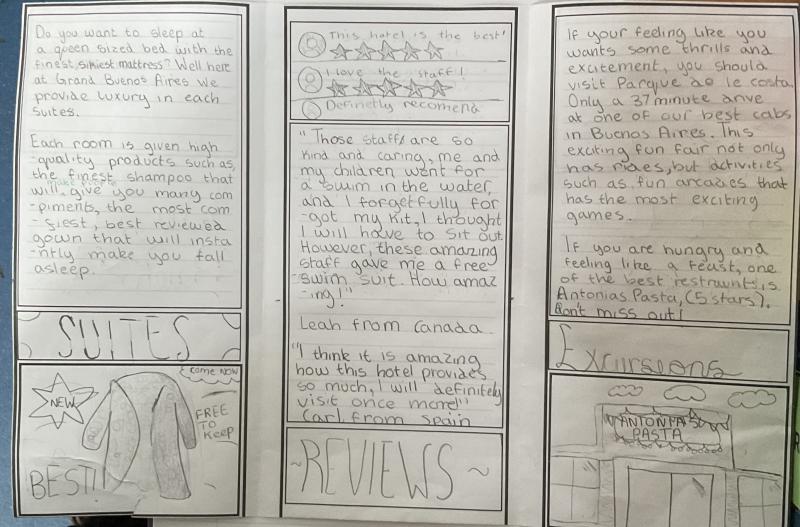 Do you want to sleep at
a queen sized bed with the
finest, silkiest mattress? Well here
at Grand Buenos Aires we
provide luxury in each
suites.
Each room is given high
-quality products such as,
the finest shampoo that
make people
will give you many com
-piments, the most com
-fiest, best reviewed
gown that will insta
-ntly make you fall
asleep.
SUITES
NEW
come now
FREE
TO
keep
BEST!!
This hotel is the best!
I love the staff!
Definetly recomend
"Those staffs are so
kind and caring, me and
my children went for
a swim in the water,
and I forgetfully for
-got my kit, I thought
I will have to sit out.
However, these amazing
staff gave me a free
-swim suit. How amaz
-ing!"
Leah from Canada
"I think it is amazing
how this hotel provides
so much, I will definitely
visit once more!"
Carl from Spain
~REVIEWS~
If your feeling like you
wants some thrills and
excitement, you should
visit Parque de le costa.
Only a 37 minute drive
at one of our best cabs
in Buenos Aires. This
exciting fun fair not only
has rides, but activities
such as fun arcades that
has the most exciting
games.
If you are hungry and
feeling like a feast, one
of the best restraunts is
Antonias Pasta, (5 stars).
Don't miss out!
Excursions
ANTONIA'S
PASTA